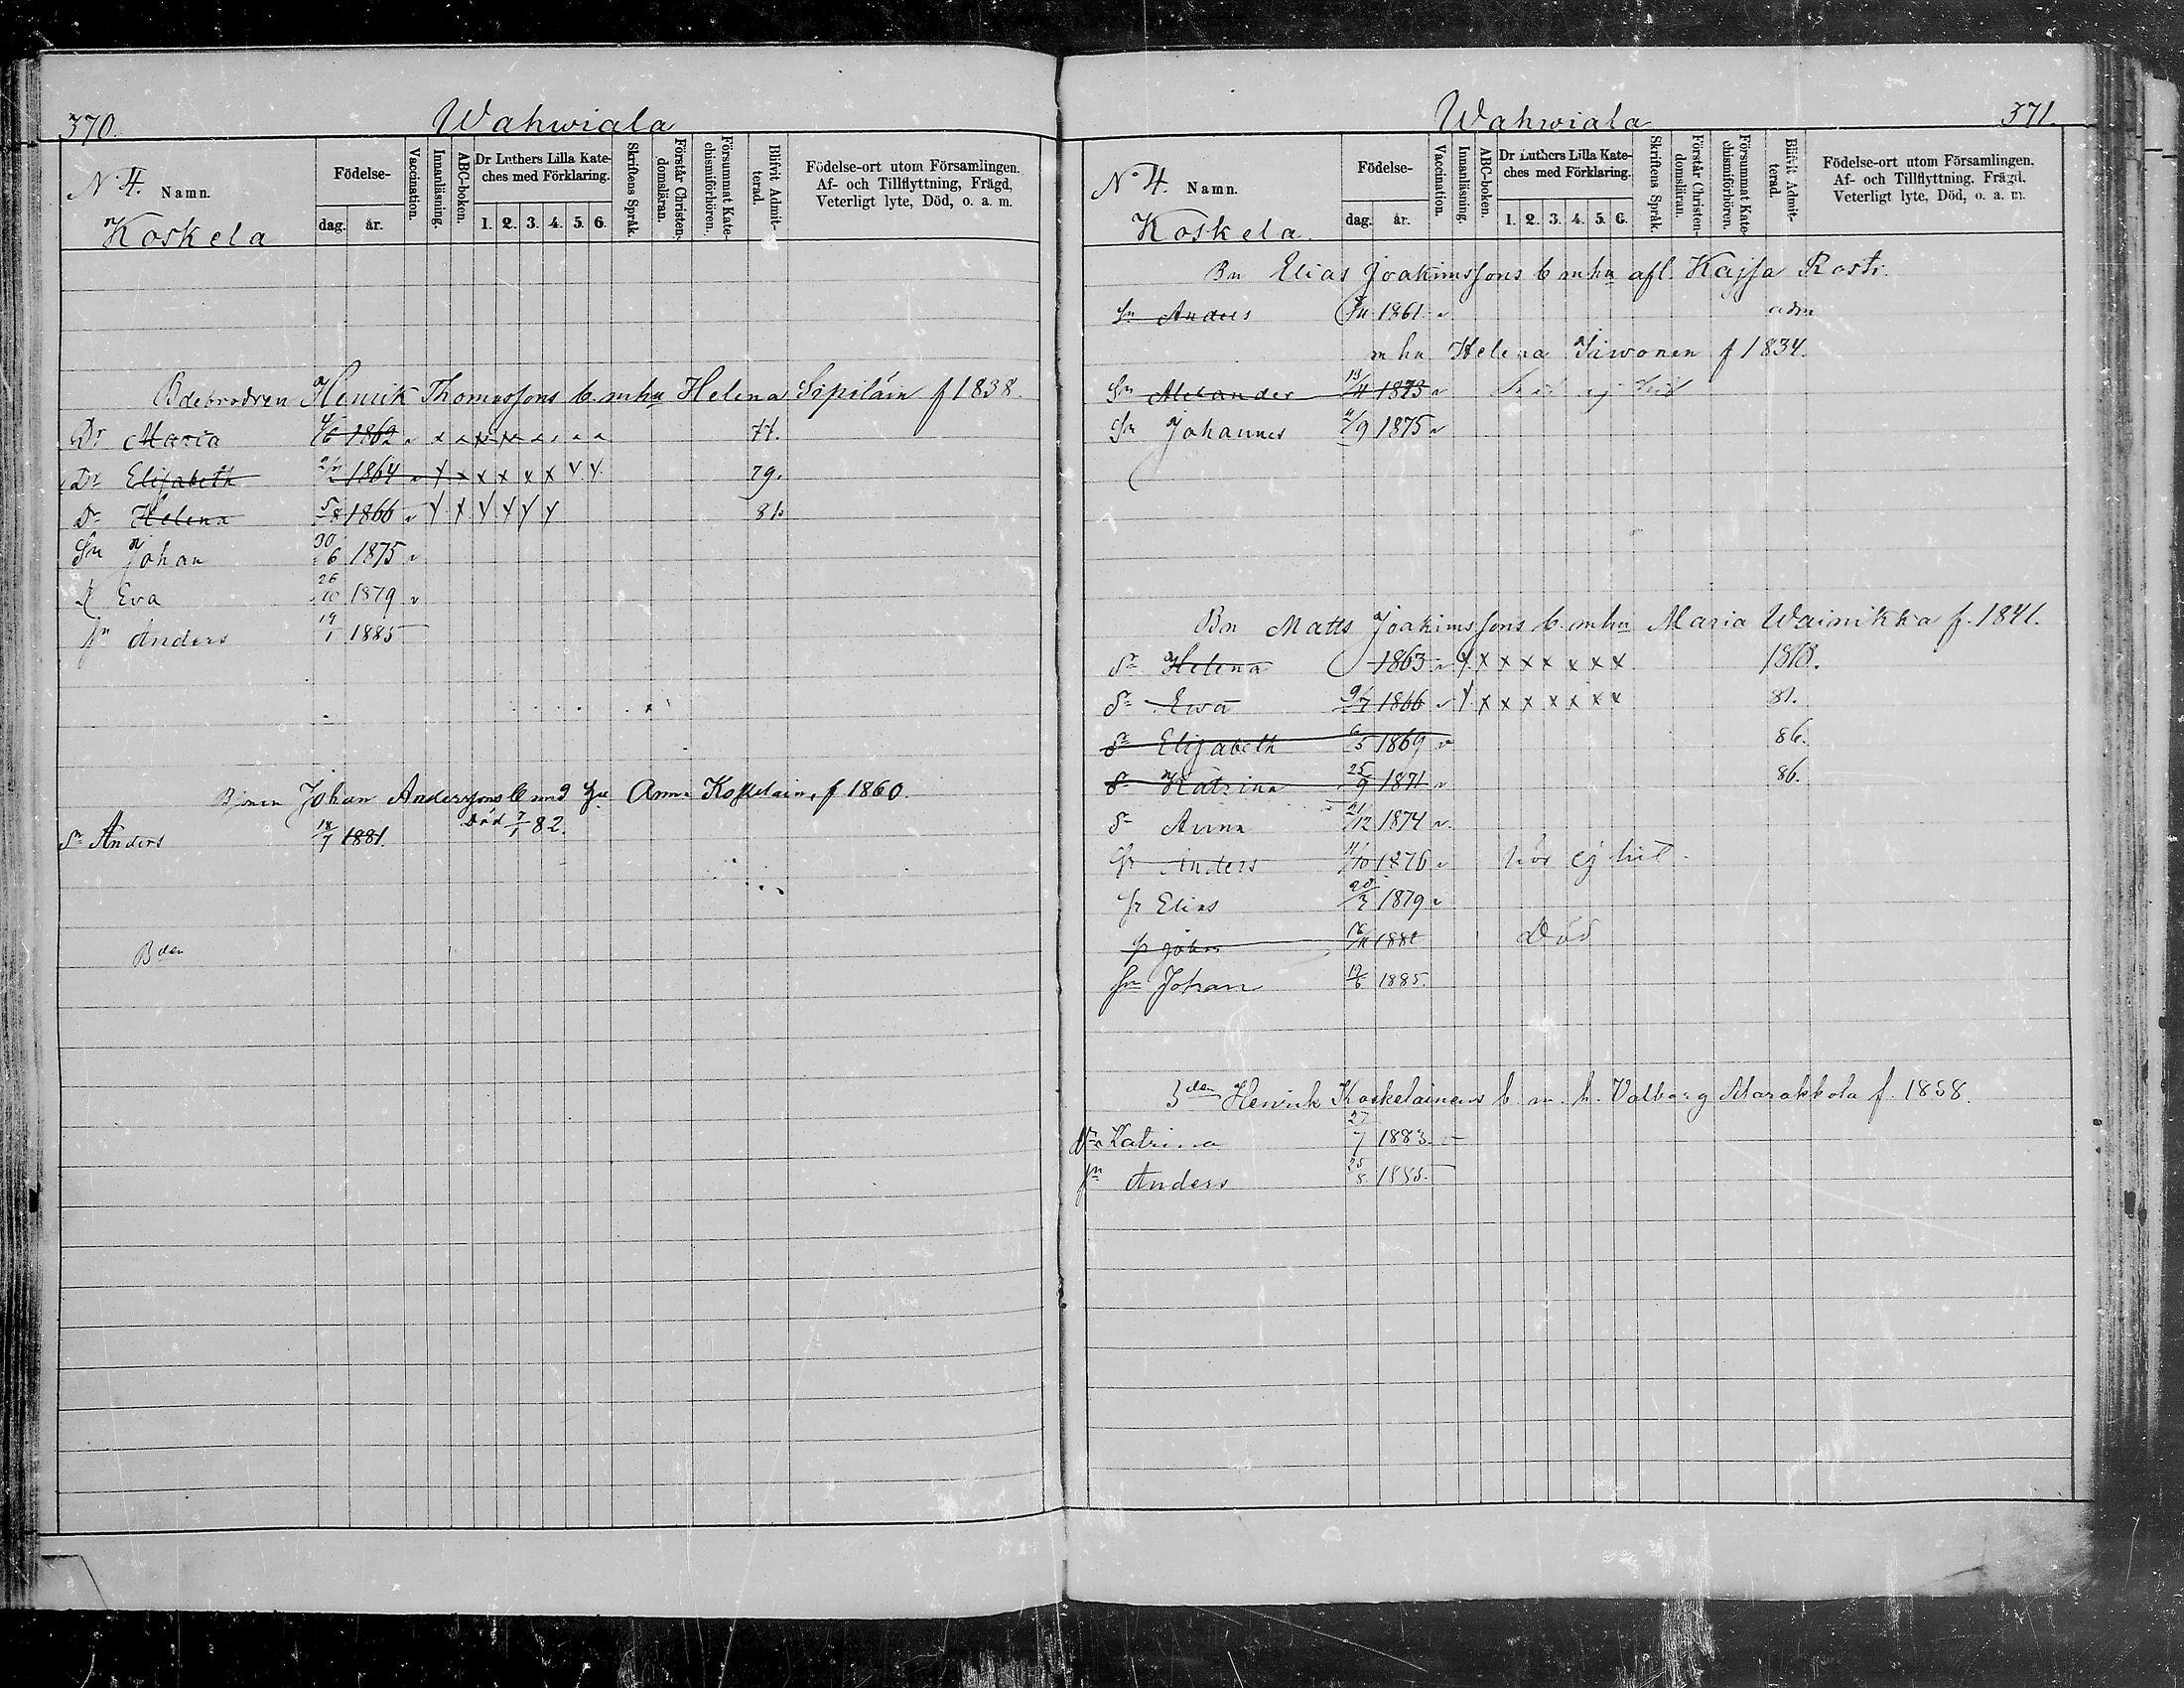 370.
Wahwiala
N 4. Namn.
Koskela
Födelse-
dag. år.
Vaccination.
Innanläsning.
ABC-boken.
Dr Luthers Lilla Kate-
ches med Förklaring.
1. 2. 3. 4. 5. 6.
Skriftens Språk.
Förstår Christen-
domsläran.
Försummat Kate-
chismiförhören.
Blifvit Admit-
terad.
Födelse-ort utom Församlingen.
Af- och Tillflyttning, Frägd,
Veterligt lyte, Död, o. a. m.
Bdebrodren Henrik Thomassons b. mhu Helena Sipiläin f 1838.
Dr Maria 4/6 1862 v x x x x x x x x 77.
Dr Elisabeth 1864 v x x x x x x v v 79.
Dr Helena 5/8 1866 v x x x x x x 81.
Sn Johan 30/6 1875 v
Eva 26/10 1879 v
Sn Anders 19/1 1885
Johan Anderssons b med hu Anna Koskelain, f 1860.
Sn Anders 18/7 1881. Död 7/1 82.
Bden
Wahwiala
371.
No 4. Namn.
Koskela.
Födelse-
dag. år.
Vaccination.
Innanläsning.
ABC-boken.
Dr Luthers Lilla Kate-
ches med Förklaring.
1. 2. 3. 4. 5. 6.
Skriftens Språk.
Förstår Christen-
domsläran.
Försummat Kate-
chismiförhören.
Blifvit Admit-
terad.
Födelse-ort utom Församlingen.
Af- och Tillflyttning. Frägd.
Veterligt lyte, Död, o. a. m.
Bn Elias Joakimssons b mhu afl. Kajsa Rosti.
Sn Anders 1861 v adm
mhu Helena Siwonen f 1834.
Sn Alexander 1873 v ej hit
Sn Johannes 1875 v
Bn Matts Joakimssons b. mhu Maria Wainikka f. 1841.
Dr Helena 1863 v x x x x x x x x 1878.
Dr Ewa 9/7 1866 v x x x x x x x x 81.
Dr Elisabeth 6/5 1869 v 86.
Dr Katrina 25/9 1871 v 86.
Dr Anna 21/12 1874 v.
Sn Anders 4/10 1876 v hör ej hit.
Sn Elias 1879 v
Sn Johan 1881 Död
Sn Johan 19/6 1885.
Bden Henrik Koskelainens b m. h. Valborg Marakkola f. 1858.
Dr Katrina 27/7 1883.
Sn Anders 25/8 1885.